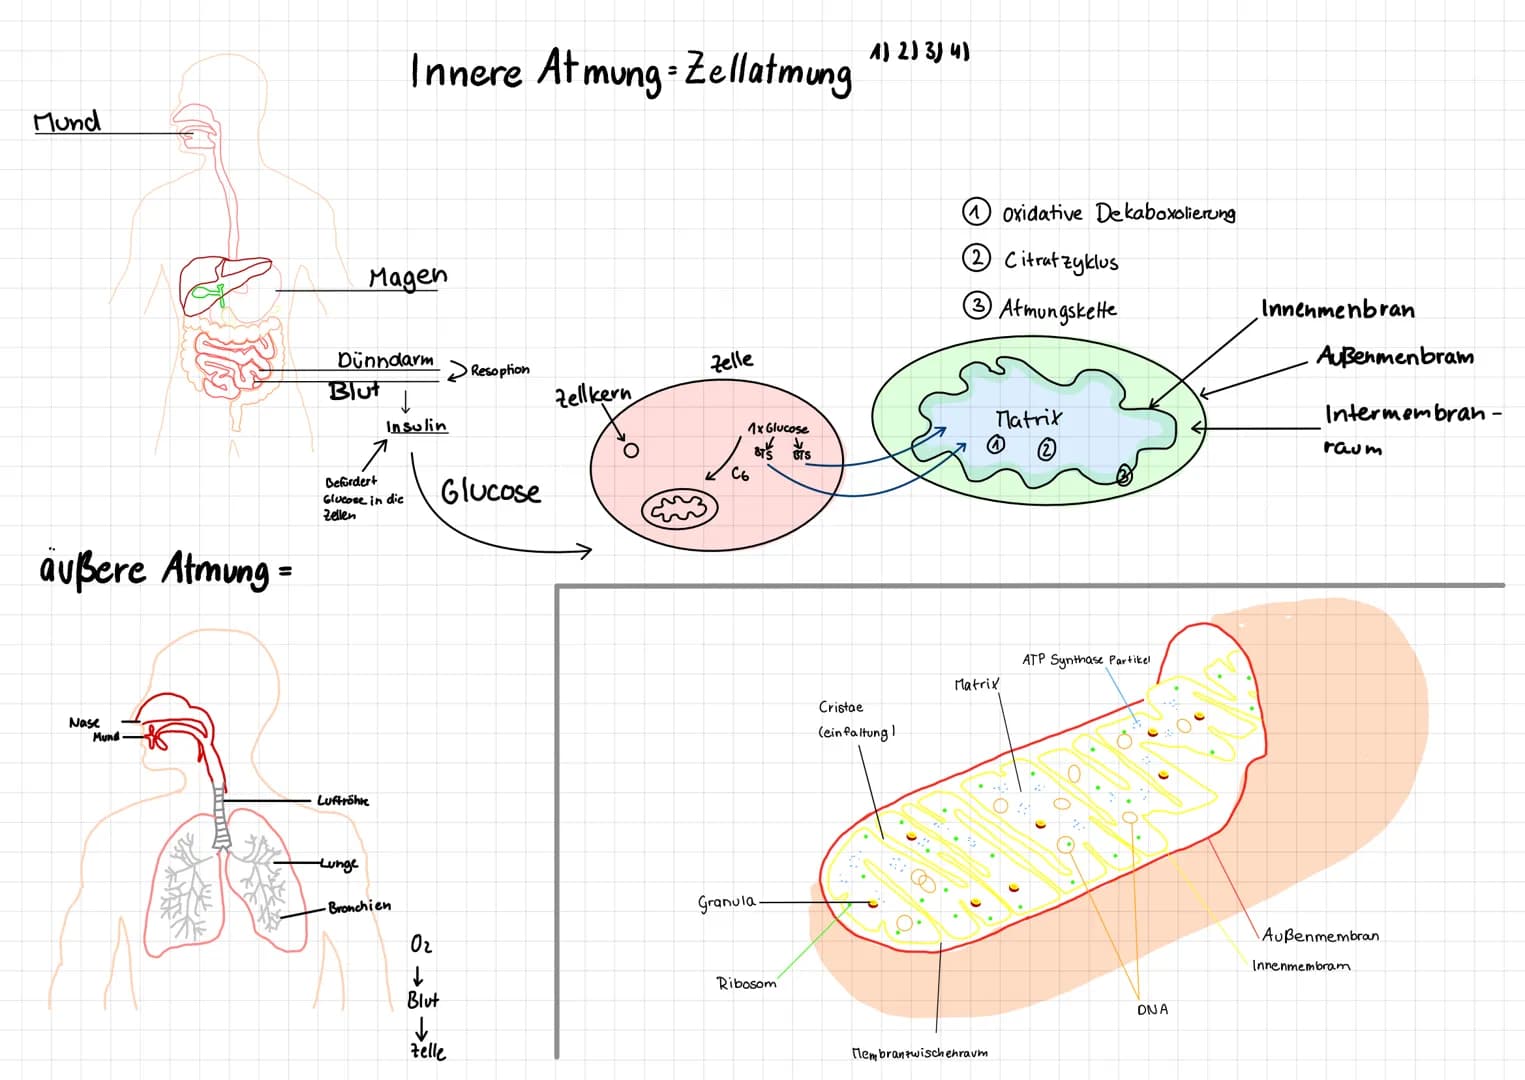 Innere Atmung = Zellatmung 1) 2) 3) 4)
Mund
Magen
Dünndarm
Resoption
Blut
Insulin
Befördert
Glucose in die
Zellen
Glucose
Zelle
Zellkern
1x Glucose
BTS BTS
C6
① oxidative Dekaboxolierung
② Citratzyklus
③ Atmungskette
Innenmenbran
Außenmenbram
Intermembran-
raum
Matrix
① ②
③
äußere Atmung =
Nase
Mund
Luftröhre
Lunge
Bronchien
O2
Blut
Zelle
ATP Synthase Partikel
Matrix
Cristae
(einfaltung)
Granula
Ribosom
Membranzwischenraum
DNA
Außenmembran
Innenmembram